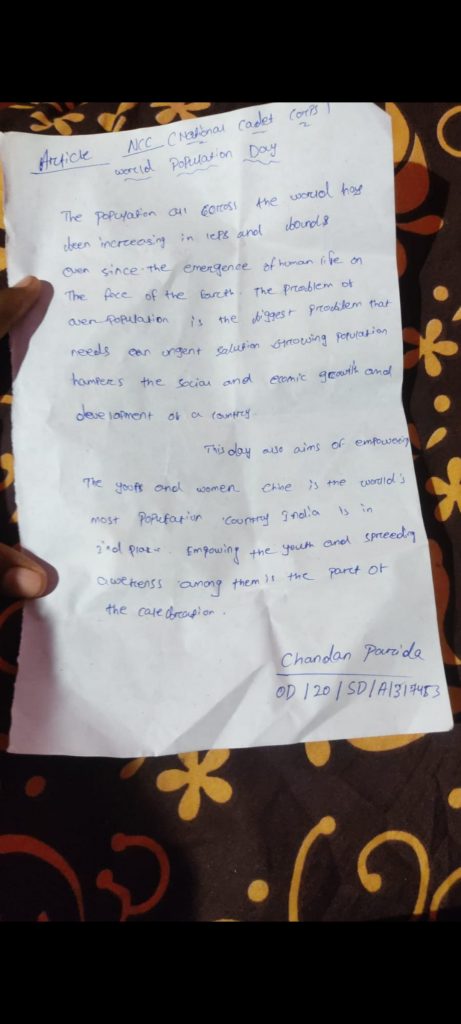 Article NCC (National Cadet Corps)
world Population Day
The Population all across the world has
been increcosing in leps and bounds
even since the emergence of human life on
The face of the Earth. The problem of
over population is the biggest problem that
needs an urgent solution Growing population
hampers the social and econic growth and
development of a country.
This day also aims of empowering
The youts and women Chine is the world's
most Popufation Country India is in
2nd place. Empowing the youth and spreeding
awerenss among them is the part of
the celebreation.
Chandan Parida
OD/20/SD/A/317453